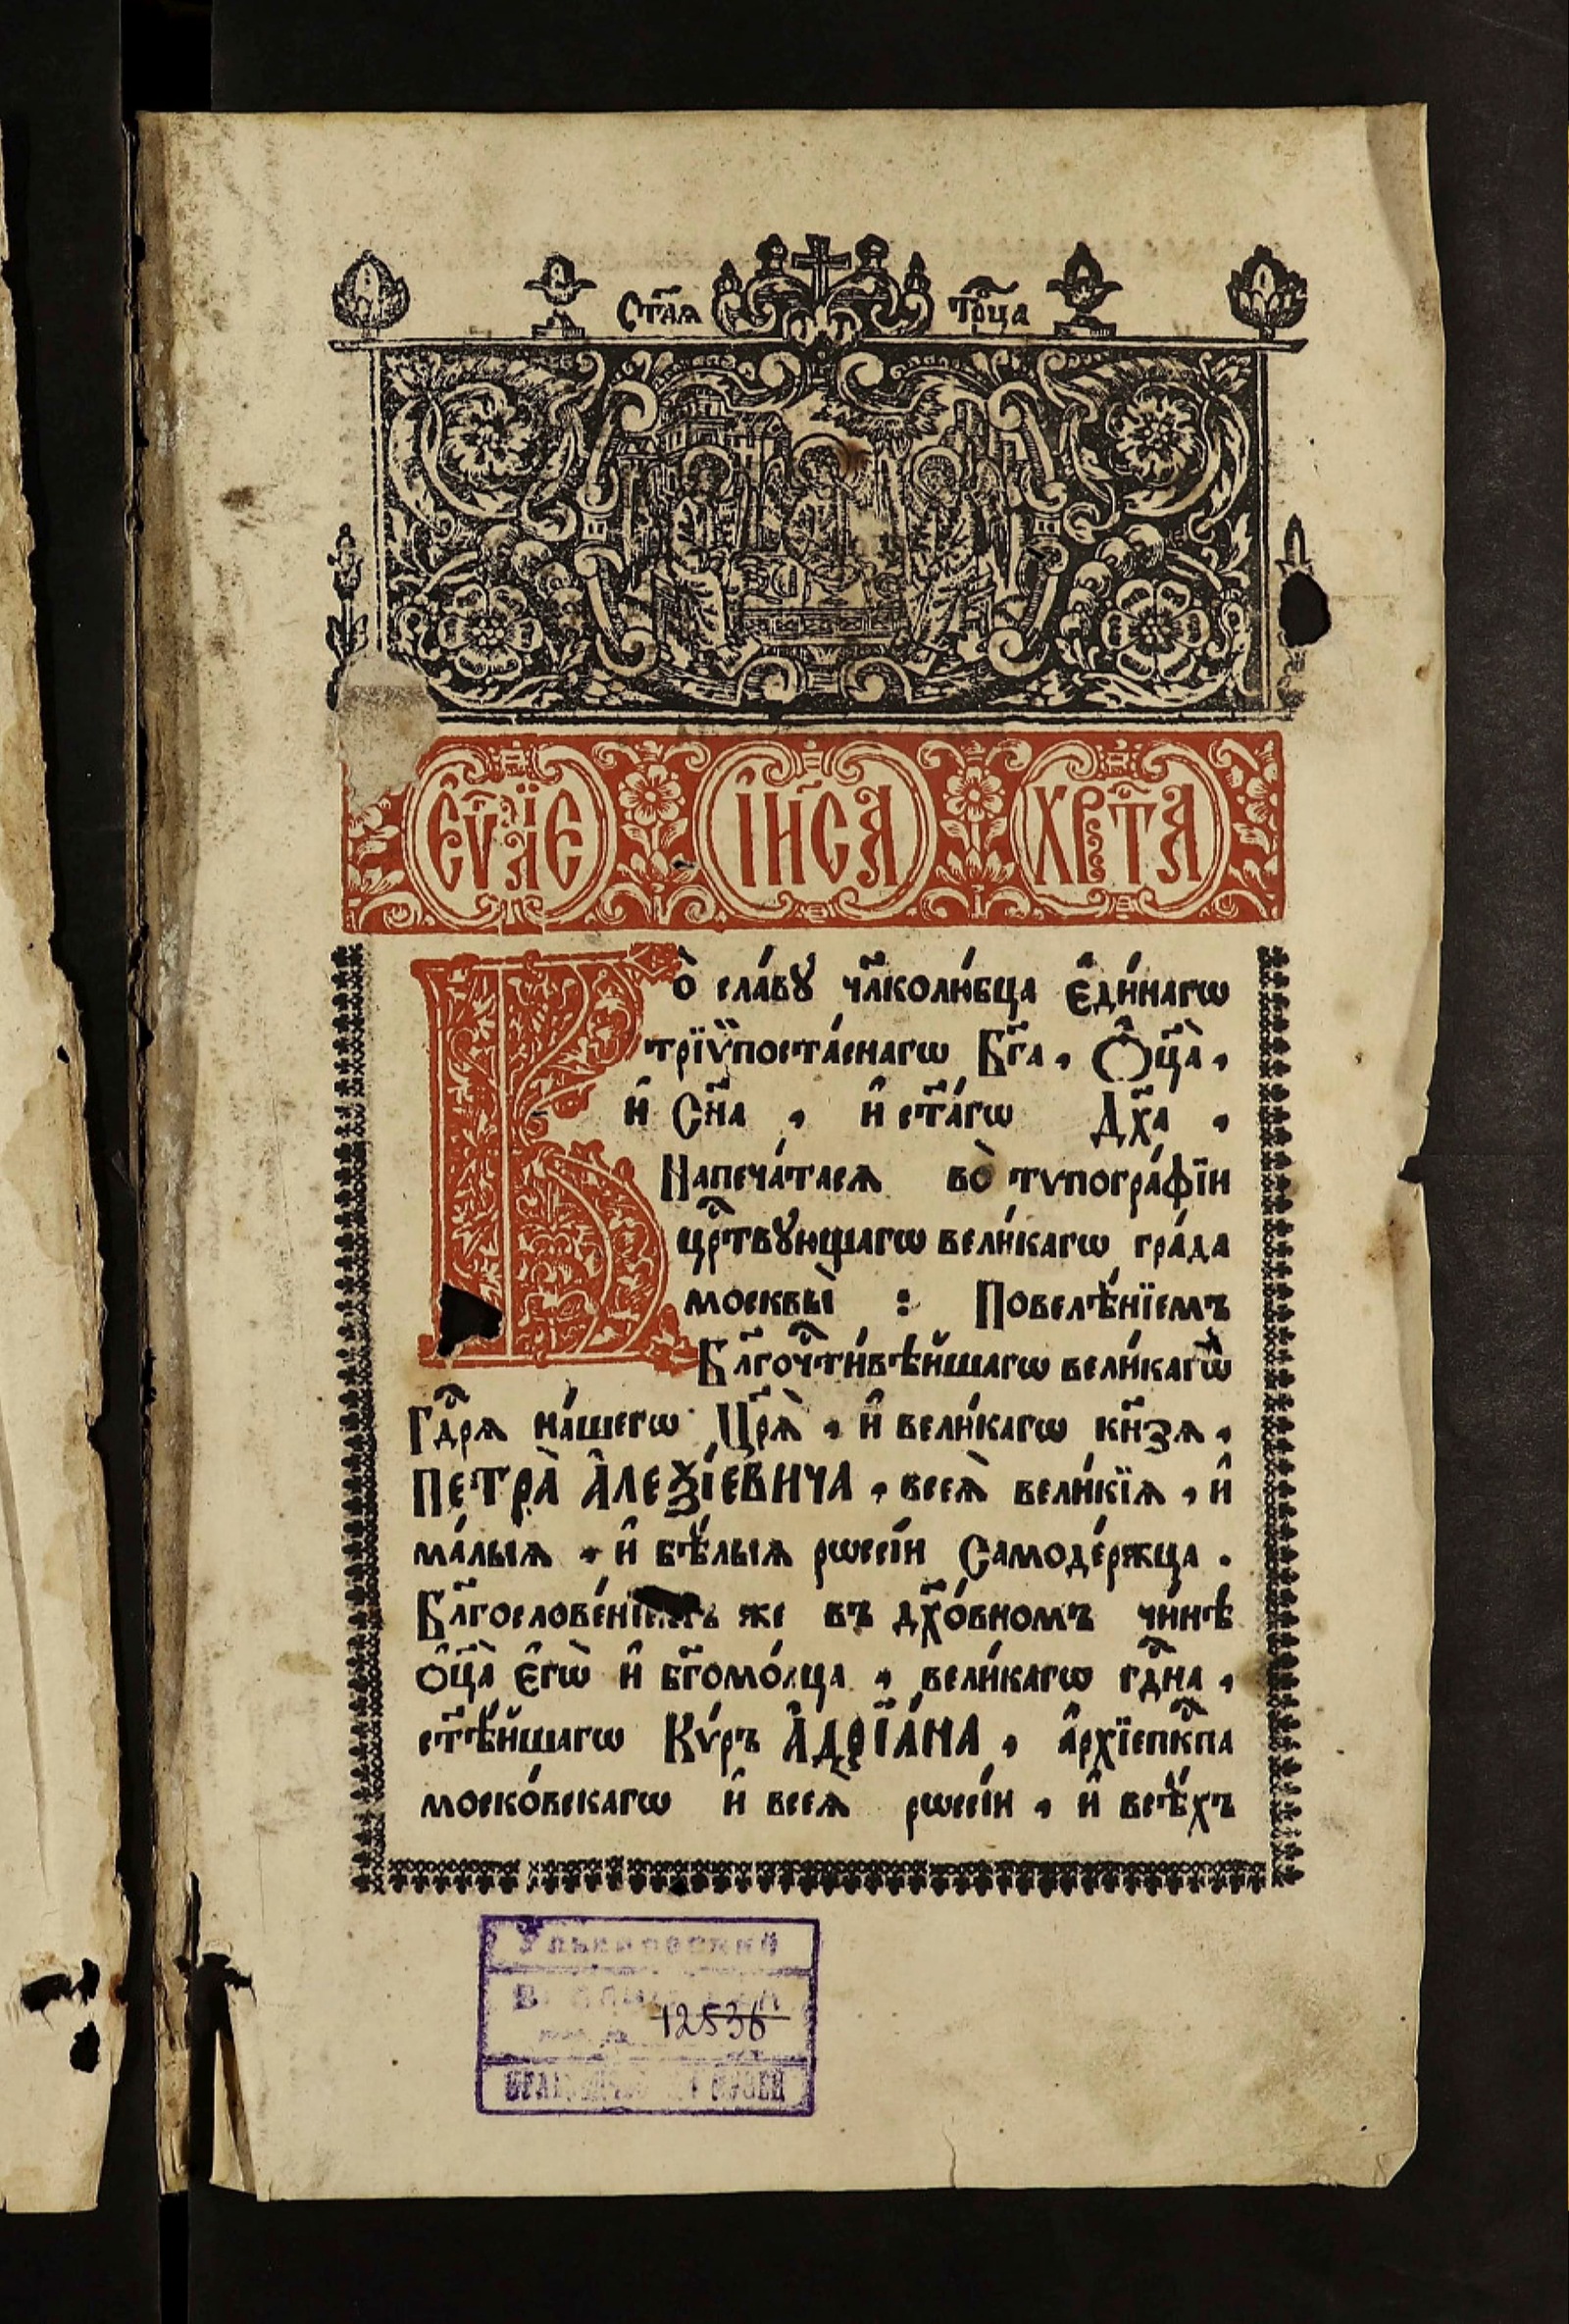 Ст҃аѧ Трⷪ҇ца
Є҆ѵⷢ҇лїе І҆и҃са Хрⷭ҇та
Во̀ сла́вꙋ чл҃колю́бца є҆ди́нагѡ
трїѷпоста́снагѡ Бг҃а, Ѻ҆ц҃а̀,
и҆ Сн҃а, и҆ ст҃а́гѡ Дх҃а,
Напеча́тасѧ во̀ тѷпогра́фїи
црⷭ҇твꙋющагѡ вели́кагѡ гра́да
москвы̀ : Повелѣ́нїемъ
Бл҃гочⷭ҇ти́вѣйшагѡ вели́кагѡ
Гдⷭ҇рѧ на́шегѡ Цр҃ѧ̀, и҆ вели́кагѡ кн҃зѧ,
ПЕТРА̀ А҆ЛЕѮІ́ЕВИЧА, всеѧ̀ вели́кїѧ, и҆
ма́лыѧ, и҆ бѣ́лыѧ рѡссі́и Самоде́ржца.
Бл҃гослове́нїемъ же въ дх҃о́вномъ чи́нѣ
ѻ҆ц҃а̀ є҆гѡ̀ и҆ бг҃омо́лца, вели́кагѡ гдⷭ҇на,
ст҃ѣ́йшагѡ Кѵ́ръ А҆ДРЇА́НА, а҆рхїепкⷭ҇па
моско́вскагѡ и҆ всеѧ̀ рѡссі́и, и҆ всѣ́хъ
Ульяновский
12536
музей